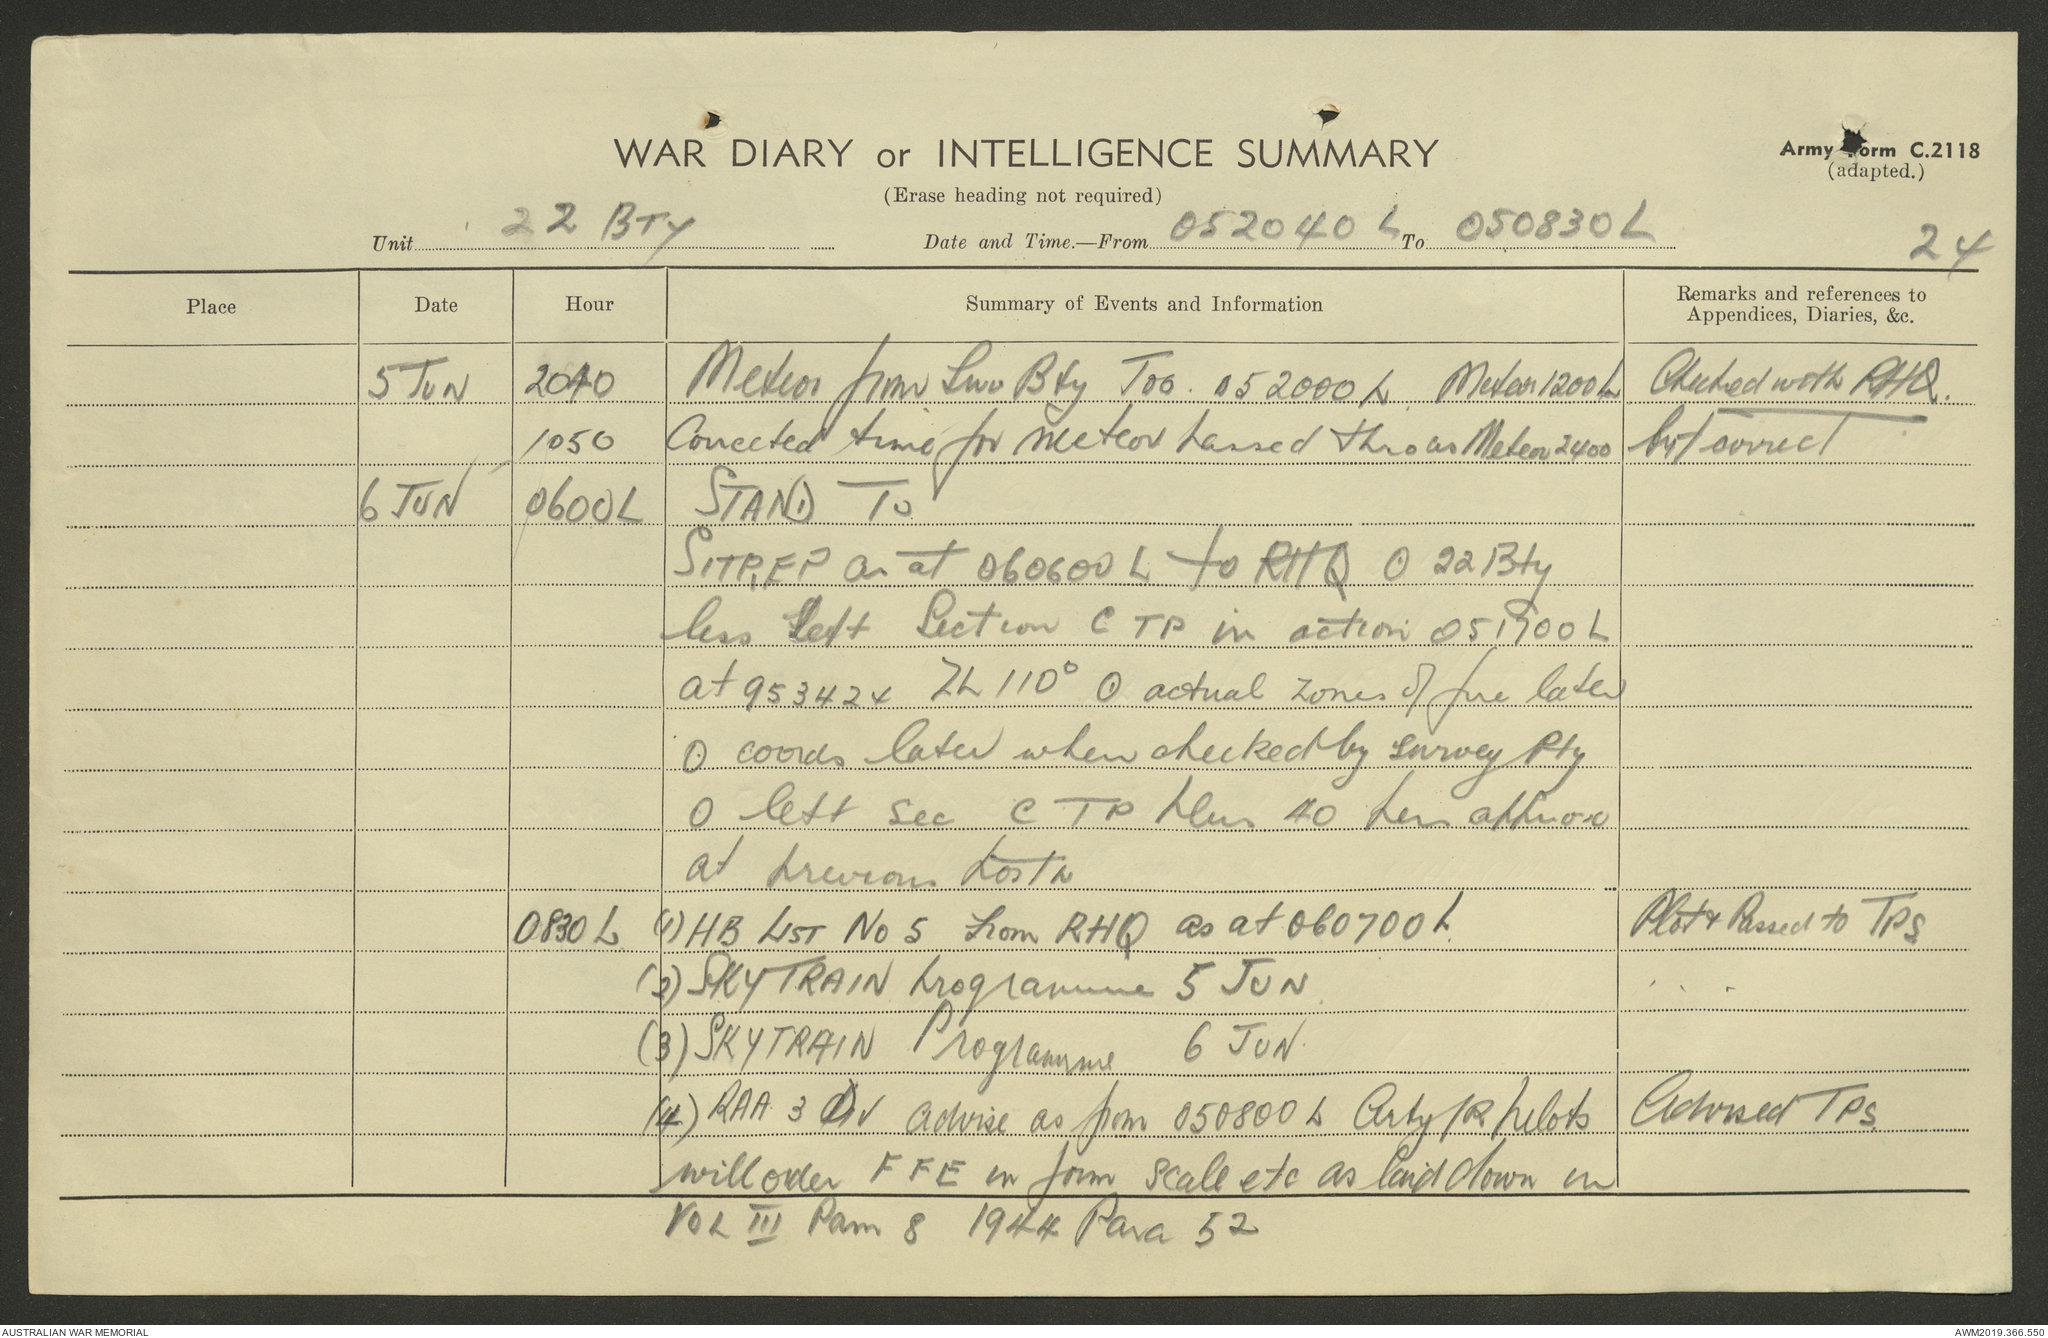 WAR DIARY or INTELLIGENCE SUMMARY
(Erase heading not required)
Army Form C.2118
(adapted.)
Unit 22 BTY Date and Time.—From 052040 L To 050830L
24
Place Date Hour Summary of Events and Information Remarks and references to Appendices, Diaries, &c.
5 JUN 2040 Meteor from Svy Bty Too. 052000 L. Meteor 1200L Checked with RHQ.
1050 Corrected time for meteor passed thro as Meteor 2400 but correct
6 JUN 0600L STAND TO
SITREP as at 060600 L to RHQ O 22 Bty
less Left Section C TP in action 051700 L
at 953424 ZL 110° O actual zones of fire later
O coords later when checked by survey Pty
O left sec C TP plus 40 pers approx
at previous posn
0830 L (1) HB LIST No 5 from RHQ as at 060700 L Plot & Passed to TPS
(2) SKYTRAIN programme 5 JUN
(3) SKYTRAIN Programme 6 JUN.
(4) RAA 3 Div advise as from 050800 L Arty/R pilots Advised TPS
will order F F E in form scale etc as laid down in
VOL III Pam 8 1944 Para 52
AUSTRALIAN WAR MEMORIAL
AWM2019.366.550